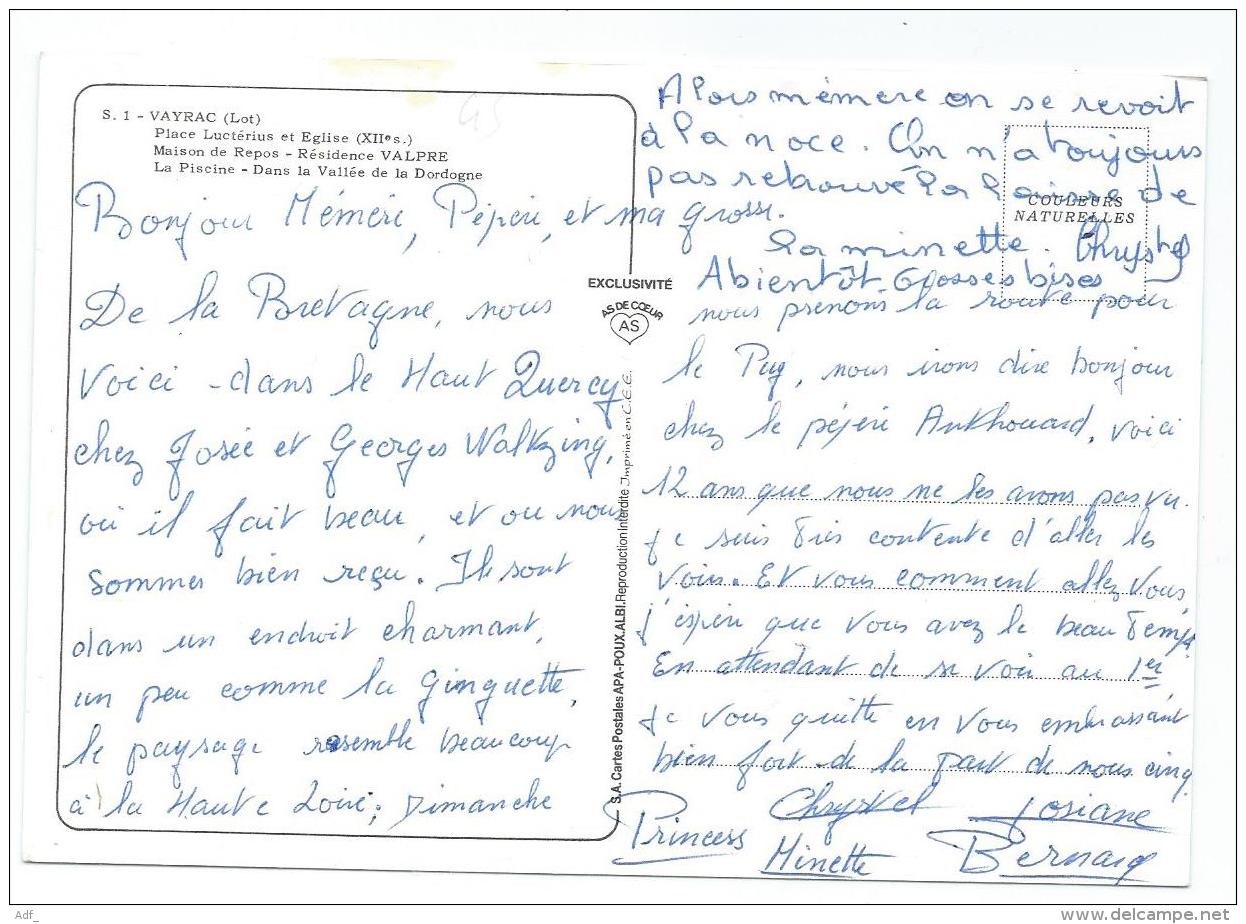 S. 1 - VAYRAC (Lot)
Place Luctérius et Eglise (XIIe s.)
Maison de Repos - Résidence VALPRE
La Piscine - Dans la Vallée de la Dordogne
45
Bonjour Mémère, Pépère, et ma grosse.
De la Bretagne, nous
voici - dans le Haut Quercy
chez Josée et Georges Waltzing,
où il fait beau, et ou nous
sommes bien reçu. Ils sont
dans un endroit charmant,
un peu comme la Ginguette,
le paysage resemble beaucoup
à la Haute Loire; Dimanche
EXCLUSIVITÉ
AS DE CŒUR
AS
S.A. Cartes Postales APA-POUX. ALBI. Reproduction Interdite Imprimé en C.E.E.
COULEURS
NATURELLES
Alors mémère on se revoit
à la noce. On n'a toujours
pas retrouvé la laisse de
la minette. Chrystel
A bientôt. Grosses bises
nous prenons la route pour
le Puy, nous irons dire bonjour
chez le pépère Ankhouard, voici
12 ans que nous ne les avons pas vu.
Je suis très contente d'aller les
voir. Et vous comment allez vous,
j'espère que vous avez le beau temps
En attendant de se voir au 1er,
Je vous quitte en vous embrassant
bien fort de la part de nous cinq
Princess
Chrystel
Josiane
Minette
Bernard
Adf_
delcampe.net